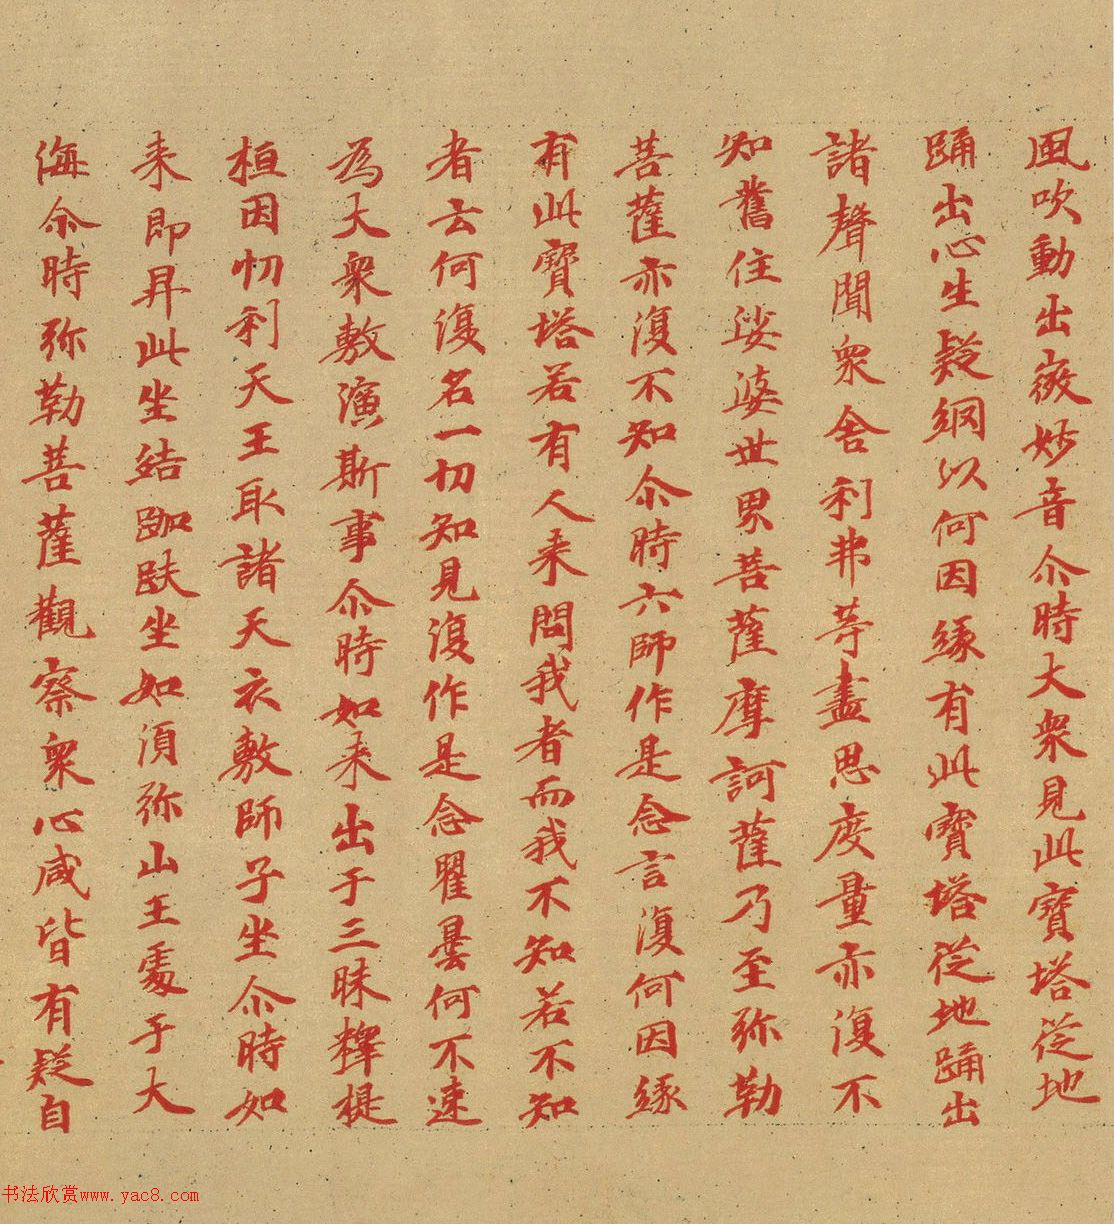 風吹動出微妙音尒時大衆見此寶塔從地
踊出心生疑網以何因緣有此寶塔從地踊出
諸聲聞衆舍利弗等盡思度量亦復不
知舊住娑婆世界菩薩摩訶薩乃至弥勒
菩薩亦復不知尒時六師作是念言復何因緣
有此寶塔若有人来問我者而我不知若不知
者云何復名一切知見復作是念瞿曇何不速
為大衆敷演斯事尒時如来出于三昧釋提
桓因忉利天王取諸天衣敷師子坐尒時如
来即昇此坐結跏趺坐如須弥山王處于大
海尒時弥勒菩薩觀察衆心咸皆有疑自
书法欣赏www.yac8.com